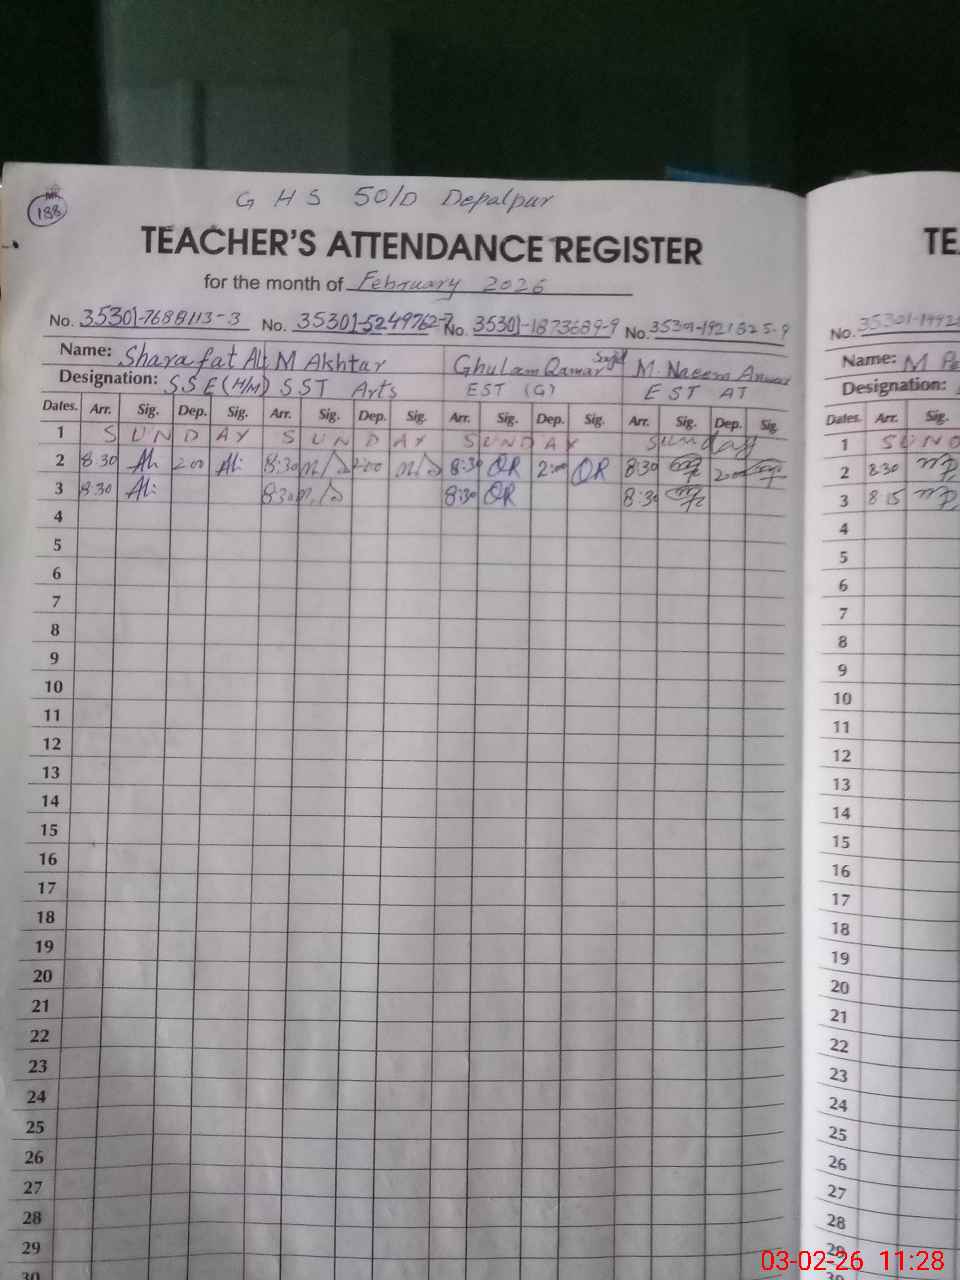 188
G H S 50/D Depalpur
TEACHER'S ATTENDANCE REGISTER
for the month of February 2026
No. 35301-7688113-3 No. 35301-5249762-7 No. 35301-1873689-9 No. 35301-1921825-9
Name: Sharafat Ali M Akhtar Ghulam Qamar Sajid M. Naeem Anwar
Designation: S S E (H/M) S S T Arts EST (G) E S T AT
Dates. Arr. Sig. Dep. Sig. Arr. Sig. Dep. Sig. Arr. Sig. Dep. Sig. Arr. Sig. Dep. Sig.
1 S U N D A Y S U N D A Y S U N D A Y Sunday
2 8:30 Ali 2:00 Ali 8:30 2:00 8:30 QR 2:00 QR 8:30 2:00
3 8:30 Ali 8:30 8:30 QR 8:30
4
5
6
7
8
9
10
11
12
13
14
15
16
17
18
19
20
21
22
23
24
25
26
27
28
29
30
TE
No. 35301-1992
Name: M
Designation:
Dates. Arr. Sig.
1 S U N D
2 8:30
3 8:15
4
5
6
7
8
9
10
11
12
13
14
15
16
17
18
19
20
21
22
23
24
25
26
27
28
29
30
03-02-26 11:28